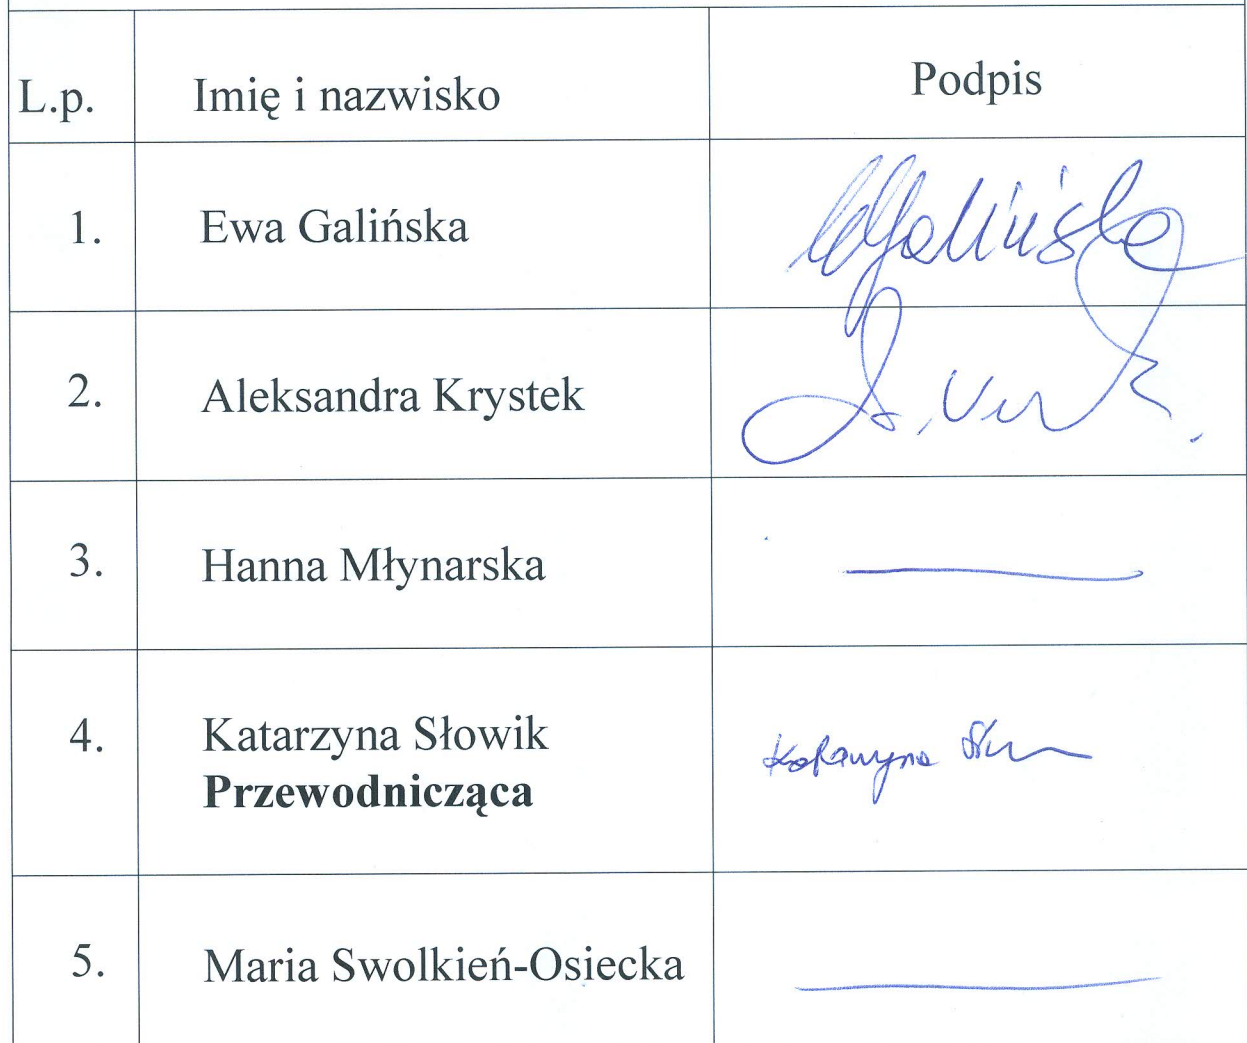 L.p. Imię i nazwisko Podpis
1. Ewa Galińska Galińska
2. Aleksandra Krystek
3. Hanna Młynarska
4. Katarzyna Słowik Katarzyna
Przewodnicząca
5. Maria Swolkień-Osiecka